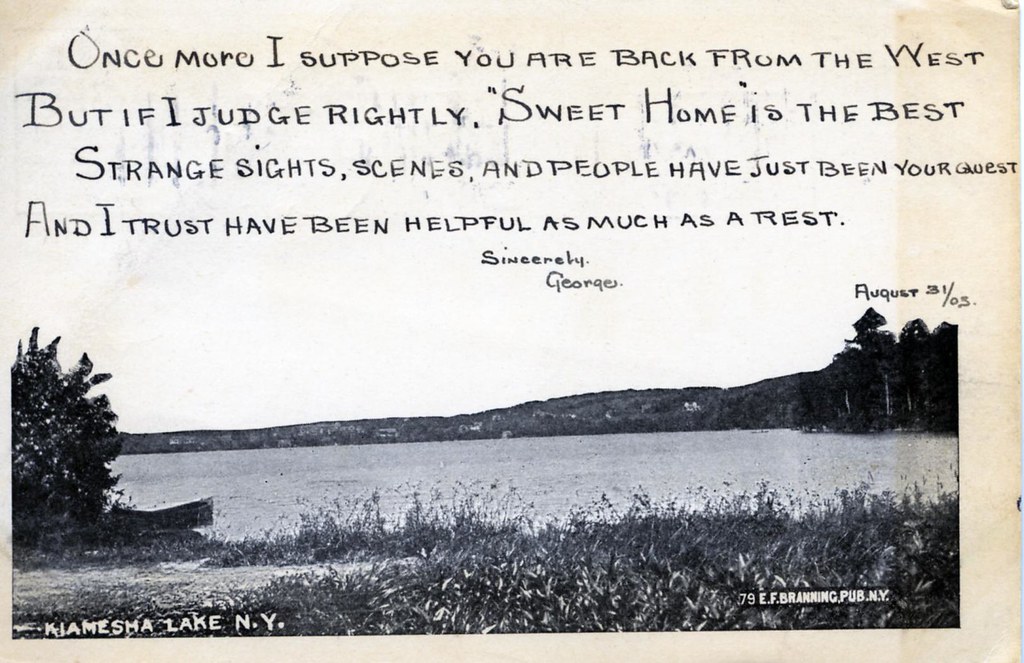 Once more I suppose you are back from the West
But if I judge rightly, "Sweet Home" is the best
Strange sights, scenes, and people have just been your quest
And I trust have been helpful as much as a rest.
Sincerely.
George.
August 31/03.
79 E.F.BRANNING,PUB.N.Y.
KIAMESHA LAKE N.Y.